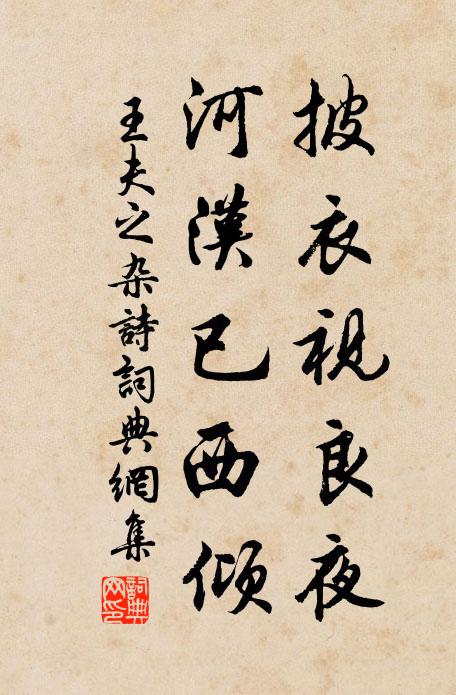 披衣視良夜
河漢已西傾
王夫之杂詩詞典網集
詞典網印